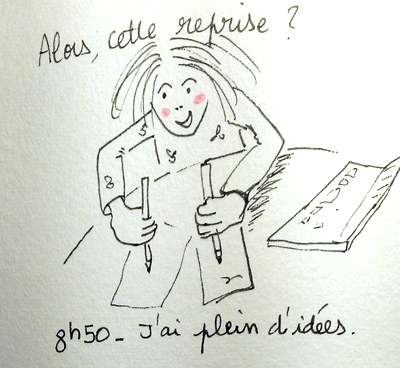 Alors, cette reprise ?
8h50 - J'ai plein d'idées.